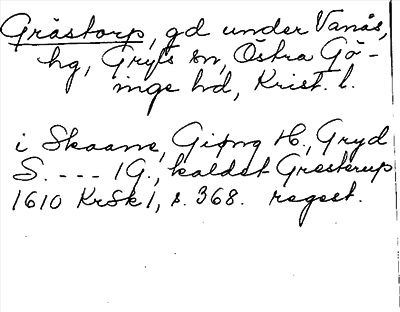 Gråstorp, gd under Vanås,
hg, Gryts sn, Östra Gö-
inge hd, Krist. l.
i Skaane, Giøng H., Gryd
S. ---- 1 G., kaldet Gresterup
1610 KrSk 1, s. 368. regest.